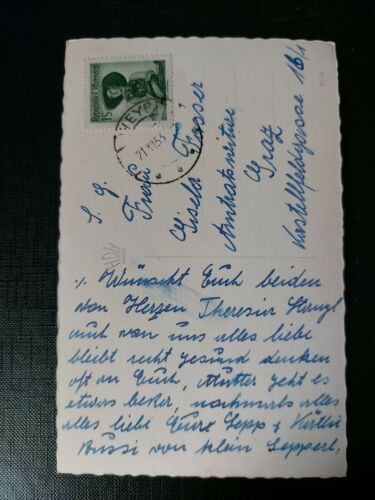 Republik Österreich
1S
WEYER
21.XII.53
S. g.
Frau
Gisela Fasser
Amtratswitwe
Graz
Kastellfeldgasse 16/I
HDH
% Wünscht Euch beiden
von Herzen Theresia
auch von uns alles liebe
bleibt recht gesund denken
oft an Euch, Mutter geht es
etwas besser, nochmals alles
alles liebe Eure Sepp & Käthi
Bussi von klein Sepperl.